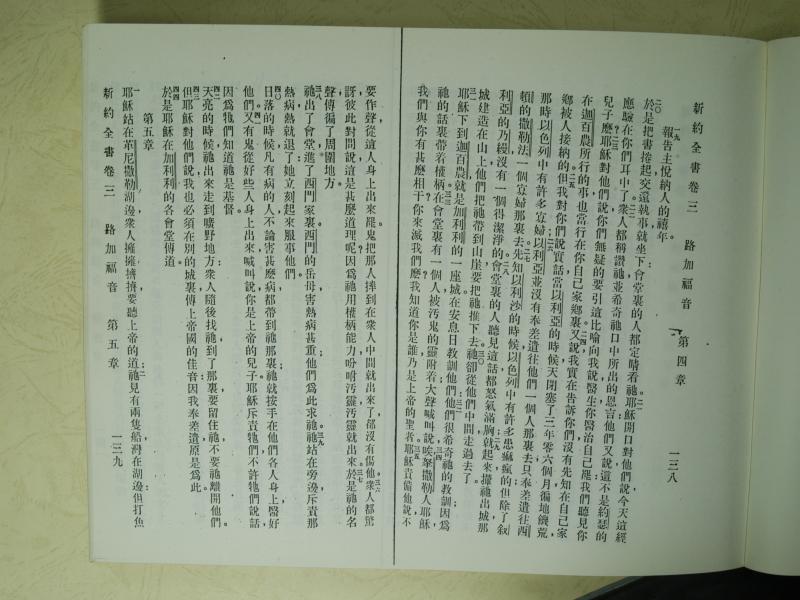 新約全書卷三 路加福音 第四章 一三八
一九報告主悅納人的禧年
二〇於是把書捲起交還執事就坐下會堂裏的人都定睛看祂耶穌開口對他們說今天這經
應驗在你們耳中了衆人都稱讚祂並希奇祂口中所出的恩言他們又說這不是約瑟的
兒子麼耶穌對他們說你們無疑的要引這比喻向我說醫生你醫治自己罷我們聽見你
在迦百農所行的事也當行在你自己家鄉裏又說我實在告訴你們沒有先知在自己家
鄉被人接納的但我對你們說實話當以利亞的時候天閉塞了三年零六個月徧地饑荒
那時以色列中有許多寡婦以利亞並沒有奉差遣往他們一個人那裏去只奉差遣往西
頓的撒勒法一個寡婦那裏去先知以利沙的時候以色列中有許多患痲瘋的但除了叙
利亞的乃縵沒有一個得潔淨的會堂裏的人聽見這話都怒氣滿胸就起來攆祂出城那
城建造在山上他們把祂帶到山崖要把祂推下去祂卻從他們中間走過去了
耶穌下到迦百農就是加利利的一座城在安息日教訓他們他們很希奇祂的教訓因爲
祂的話裏帶着權柄在會堂裏有一個人被汚鬼的靈附着大聲喊叫說唉拏撒勒人耶穌
我們與你有甚麼相干你來滅我們麼我知道你是誰乃是上帝的聖者耶穌責備他說不
要作聲從這人身上出來罷鬼把那人摔到在衆人中間就出來了都沒有傷他衆人都驚
訝彼此對問說這是甚麼道理呢因爲祂用權柄能力吩咐汚靈汚靈就出來於是祂的名
聲傳徧了周圍地方
祂出了會堂進了西門家裏西門的岳母害熱病甚重他們爲此求祂祂站在旁邊斥責那
熱病熱就退了她立刻起來服事他們
日落的時候凡有病的人不論害甚麼病都帶到祂那裏祂就按手在他們各人身上醫好
他們又有鬼從好些人身上出來喊叫說你是上帝的兒子耶穌斥責牠們不許牠們說話
因爲牠們知道祂是基督
天亮的時候祂出來走到曠野地方衆人隨後找祂到了那裏要留住祂不要祂離開他們
但耶穌對他們說我也必須在別的城裏傳上帝國的佳音因我奉差遣原是爲此
於是耶穌在加利利的各會堂傳道
第五章
一耶穌站在革尼撒勒湖邊衆人擁擁擠擠要聽上帝的道祂見有兩隻船灣在湖邊但打魚
新約全書卷三 路加福音 第五章 一三九